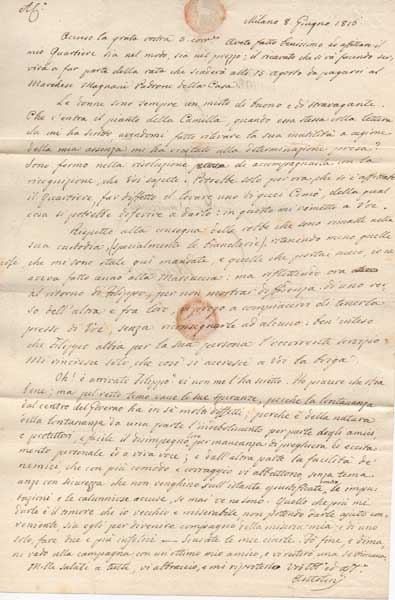 Milano 8. Giugno 1815
Accuso la grata vostra 3 corr.e Avete fatto benissimo ad affittare il
mio Quartiere sia nel modo, sia nel prezzo: il ricavato che si va facendo ser
virà a far parte della rata che scaderà alli 15 agosto da pagarsi al
Marchese Magnani Padrone della Casa.
Le donne sono sempre un misto di buono e di stravagante.
Che c'entra il pianto della Camilla, quando essa stessa colla lettera
da mi ha scritto avendomi fatto rilevare la sua inutilità a cagione
della mia assenza mi ha eccitato alla determinazione presa?
Sono fermo nella risoluzione di accompagnarla con la
ricognizione, che Voi sapete. Potrebbe solo per ora che si è affittato
il Quartiere, far difetto il levare uno di quei Comò, della qual
cosa si potrebbe differire a darlo: in questo mi rimetto a Voi.
Rispetto alla consegna delle robbe che sono rimaste nella
sua custodia, (specialmente le biancherie) ritenendo meno quelle
che me sono state qui mandate, e quelle che portai meco, io ne
aveva fatto cenno alla Marcaccia: ma riflettendo ora
al ritorno di Filippo, per non mostrar diffidenza di uno ver
so dell'altra e fra loro, vi prego a compiacervi di tenerla
presso di Voi, senza riconsegnarle ad alcuno: ben inteso
che Filippo abbia per la sua persona l'occorrente servizio.
Mi rincresce solo, che così si accresce a Voi la briga.
Oh! è arrivato Filippo? ei non me l'ha scritto. Ho piacere che stia
bene: ma pel resto temo vane le sue speranze, perchè la lontananza
dal centro del Governo ha in sè molti difetti; perchè è della natura
della lontananza da una parte l'indebolimento per parte degli amici
e protettori, e facile il disimpegno per mancanza di preghiera, ed eccita
mento personale ed a viva voce; e dall'altra parte la facilità de'
nemici che con più comodo e coraggio vi abbattono, senza tema
anzi con sicurezza che non venghino sull'istante giustificate le impu
tazioni e le calunniose accuse, se mai ve ne sono. Quello che più me
duole è il timore che io vecchio e miserabile non potendo dargli aiuto con
veniente sia egli per divenire compagno della miseria mia; e di uno
solo, fare due e più infelici. Scusate le mie ciarle. Sto bene, e dima
ni vado alla campagna con un ottimo mio amico, e vi resterò una settimana.
Mille saluti a tutti, vi abbraccio, e mi ripeto